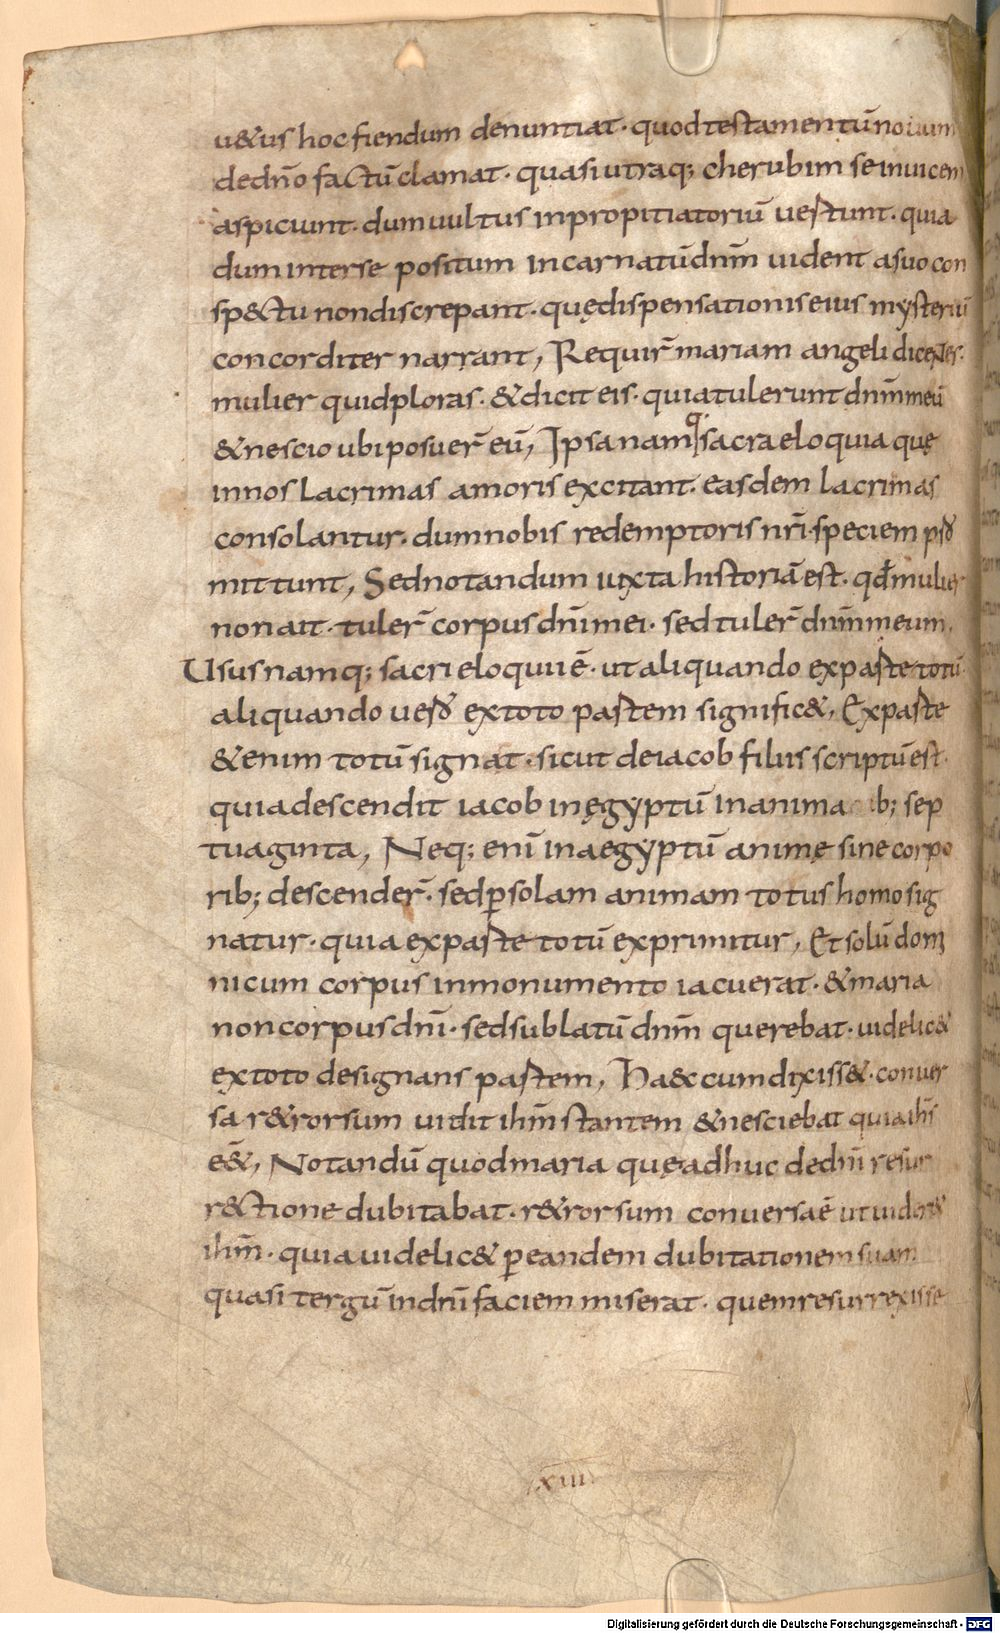 u&us hoc fiendum denuntiat · quod testamentū nouum
dedn̄o factū clamat · quasi utraq; cherubim se inuicem
aspiciunt · dum uultus inpropitiatoriū uertunt · quia
dum interse positum incarnatū dn̄m uident asuo con
sp&ctu non discrepant · quę dispensationis eius mysteriū
concorditer narrant, Requir̄ mariam angeli dicentes ·
mulier quid ploras · & dicit eis · quia tulerunt dn̄m meū
& nescio ubi posuer̄ eū, Ipsa namq; sacra eloquia quę
innos lacrimas amoris excitant · easdem lacrimas
consolantur · dum nobis redemptoris nr̄i · speciem
mittunt, Sed notandum iuxta historiā est · qđ mulier
non ait · tuler̄ corpus dn̄i mei · sed tuler̄ dn̄m meum ·
Usus namq; sacri eloquii ē · ut aliquando ex parte totū ·
aliquando uero ex toto partem signific&, Ex parte
& enim totū signat · sicut deiacob filiis scriptū est ·
quia descendit iacob inęgyptū in anima ib; sep
tuaginta, Neq; eni̅ inaegyptū animę sine corpo
rib; descender̄ · sed p̲ solam animam totus homo sig
natur · quia ex parte totū exprimitur, Et solū domi
nicum corpus inmonumento iacuerat · & maria
non corpus dn̄i · sed sublatū dn̄m querebat · uidelic&
ex toto designans partem, Haec cum dixiss& · conuer
sa r&rorsum uidit ih̄m stantem & nesciebat quia ih̄s
e&̄, Notandū quod maria quę adhuc dedn̄i resur
r&ctione dubitabat · r&rorsum conuersa ē ut uider&
ih̄m · quia uidelic& p̲ eandem dubitationem suam
quasi tergū in dn̄i faciem miserat · quem resurrexisse
xiii
Digitalisierung gefördert durch die Deutsche Forschungsgemeinschaft - DFG